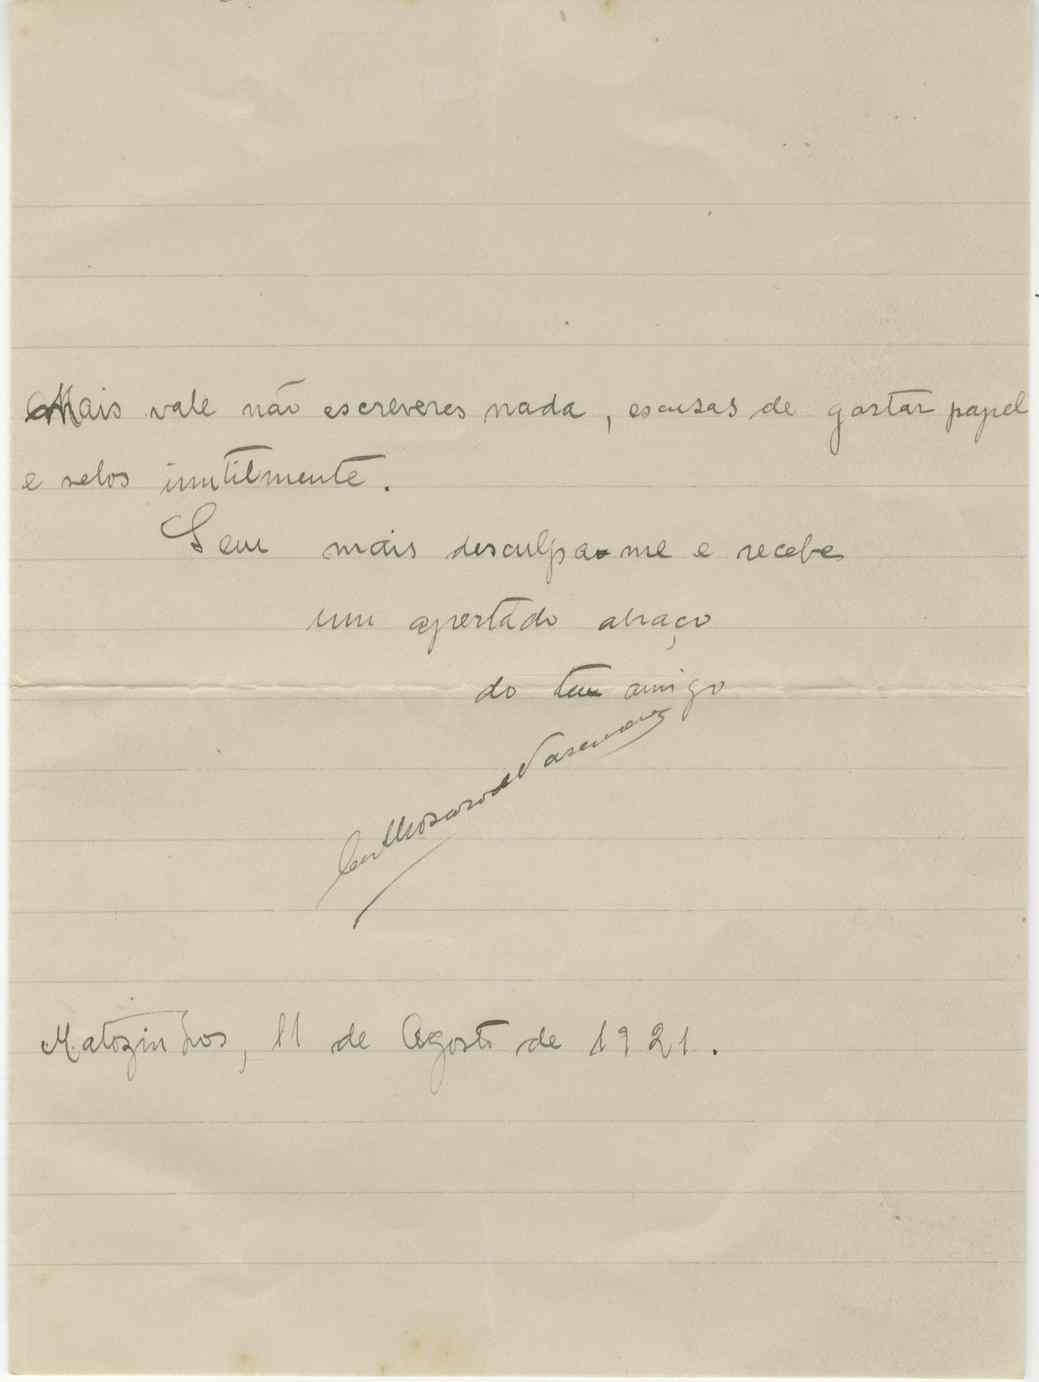 Mais vale não escreveres nada, escusas de gastar papel
e selos inutilmente.
Sem mais desculpa-me e recebe
um apertado abraço
do teu amigo
de Vasconcelos
Matozinhos, 11 de Agosto de 1921.